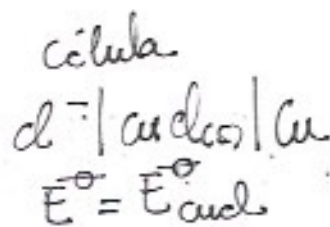 Célula
Cl⁻ | CuCl(s) | Cu
E^⊖ = E^⊖ CuCl